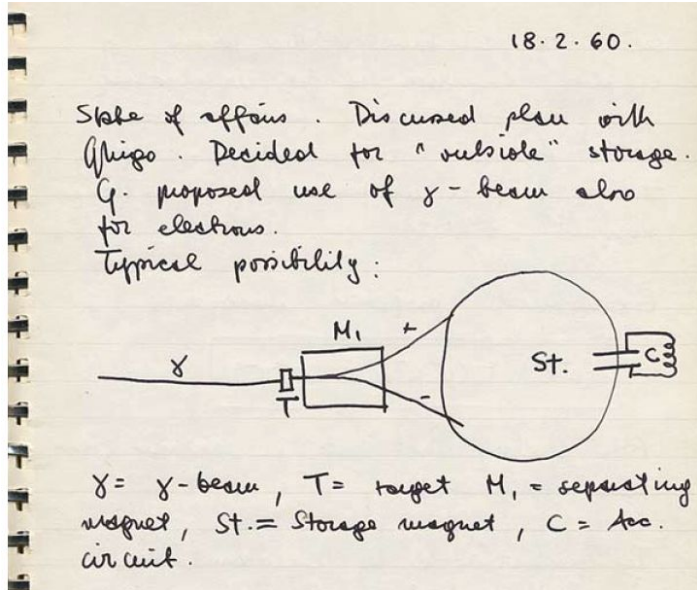 18.2.60.
State of affairs. Discussed plan with
Ghigo. Decided for "outside" storage.
G. proposed use of γ-beam also
for electrons.
Typical possibility:
M₁
+
γ
St.
C
-
T
γ = γ-beam, T = target M₁ = separating
magnet, St. = Storage magnet, C = Acc.
circuit.